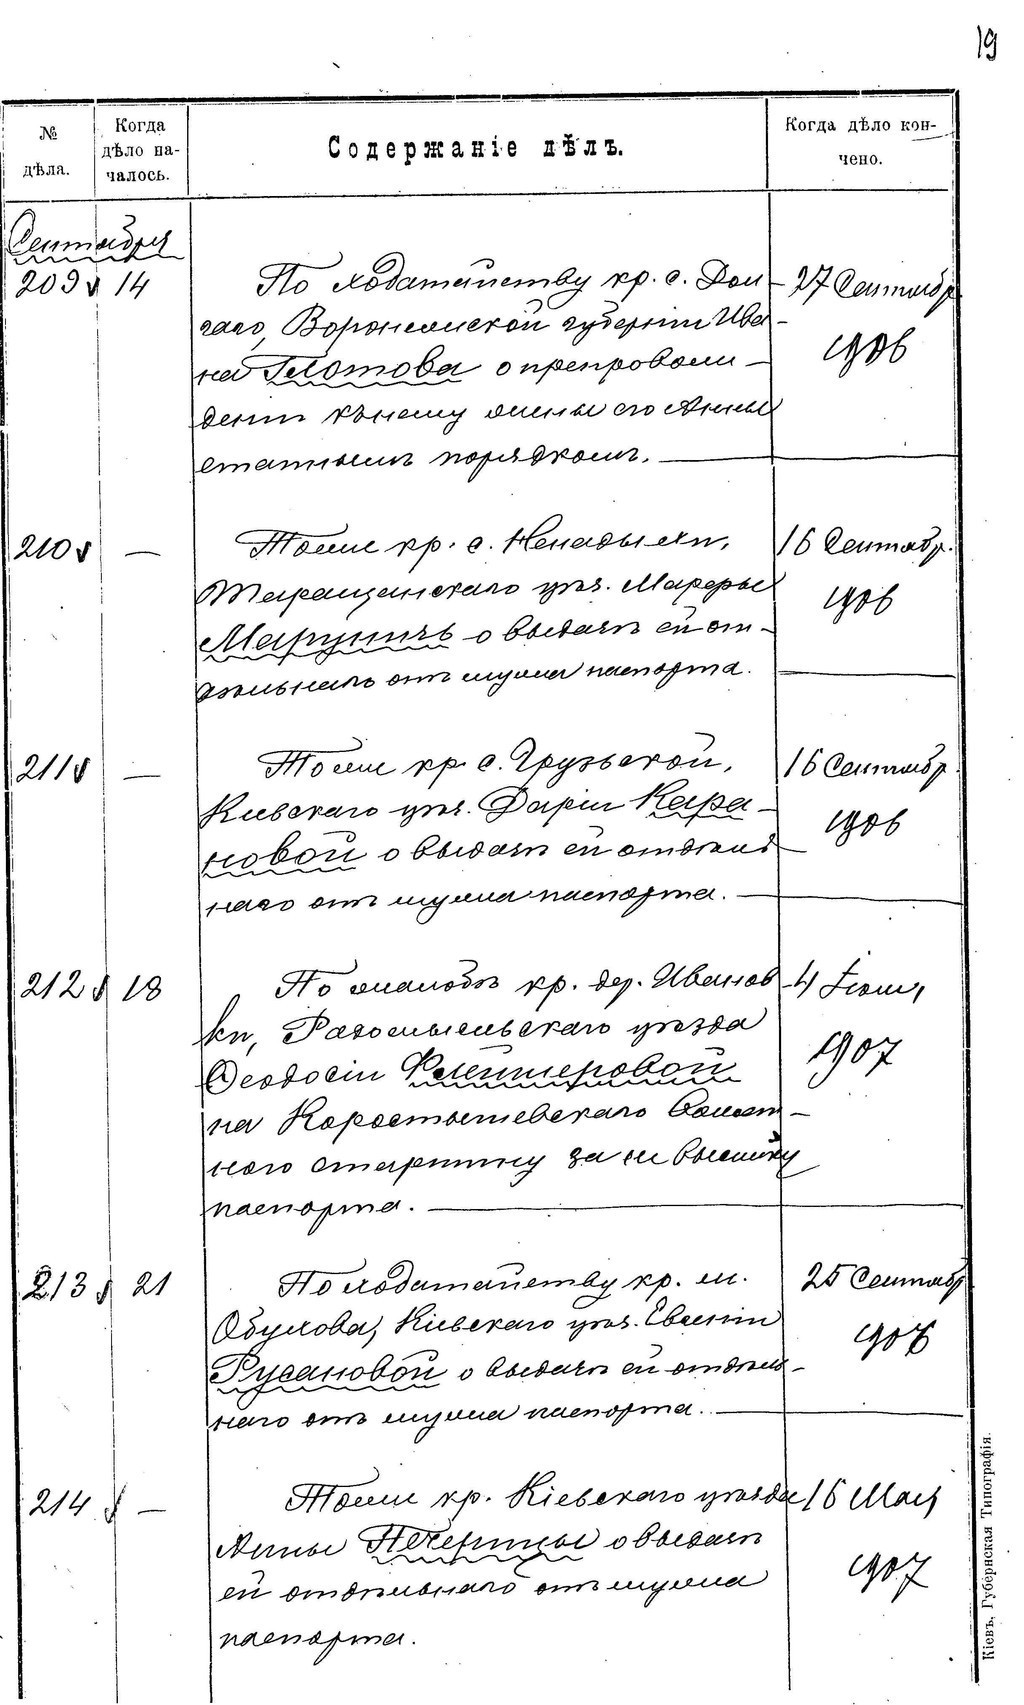 19
№ дѣла.
Когда дѣло началось.
Содержаніе дѣлъ.
Когда дѣло кончено.
Сентября
209 14 По ходатайству кр. с. Дол- 27 Сентябр.
гаго, Воронежской губерніи Ива- 1906
на Глотова о препровож-
деніи къ нему жены его Анны
етапнымъ порядкомъ.
210 — Тоже кр. с. Ненадыхи, 16 Сентябр.
Таращанскаго уѣз. Марфы 1906
Маруничъ о выдачѣ ей от-
дѣльнаго отъ мужа паспорта.
211 — Тоже кр. с. Грузьской, 16 Сентябр.
Кіевскаго уѣз. Даріи Кара- 1906
новой о выдачѣ ей отдѣль
наго отъ мужа паспорта.
212 18 По жалобѣ кр. дер. Иванов 4 Іюня
ки, Радомысльскаго уѣзда 1907
Феодосіи Клейшеровой
на Коростышевскаго Волост-
ного старшину за не высылку
паспорта.
213 21 По ходатайству кр. м. 25 Сентябр
Обухова, Кіевскаго уѣз. Евгеніи 1906
Русановой о выдачѣ ей отдѣль-
наго отъ мужа паспорта.
214 — Тоже кр. Кіевскаго уѣзда 16 Мая
Анны Печерицы о выдачѣ 1907
ей отдѣльнаго отъ мужа
паспорта.
Кіевъ, Губернская Типографія.